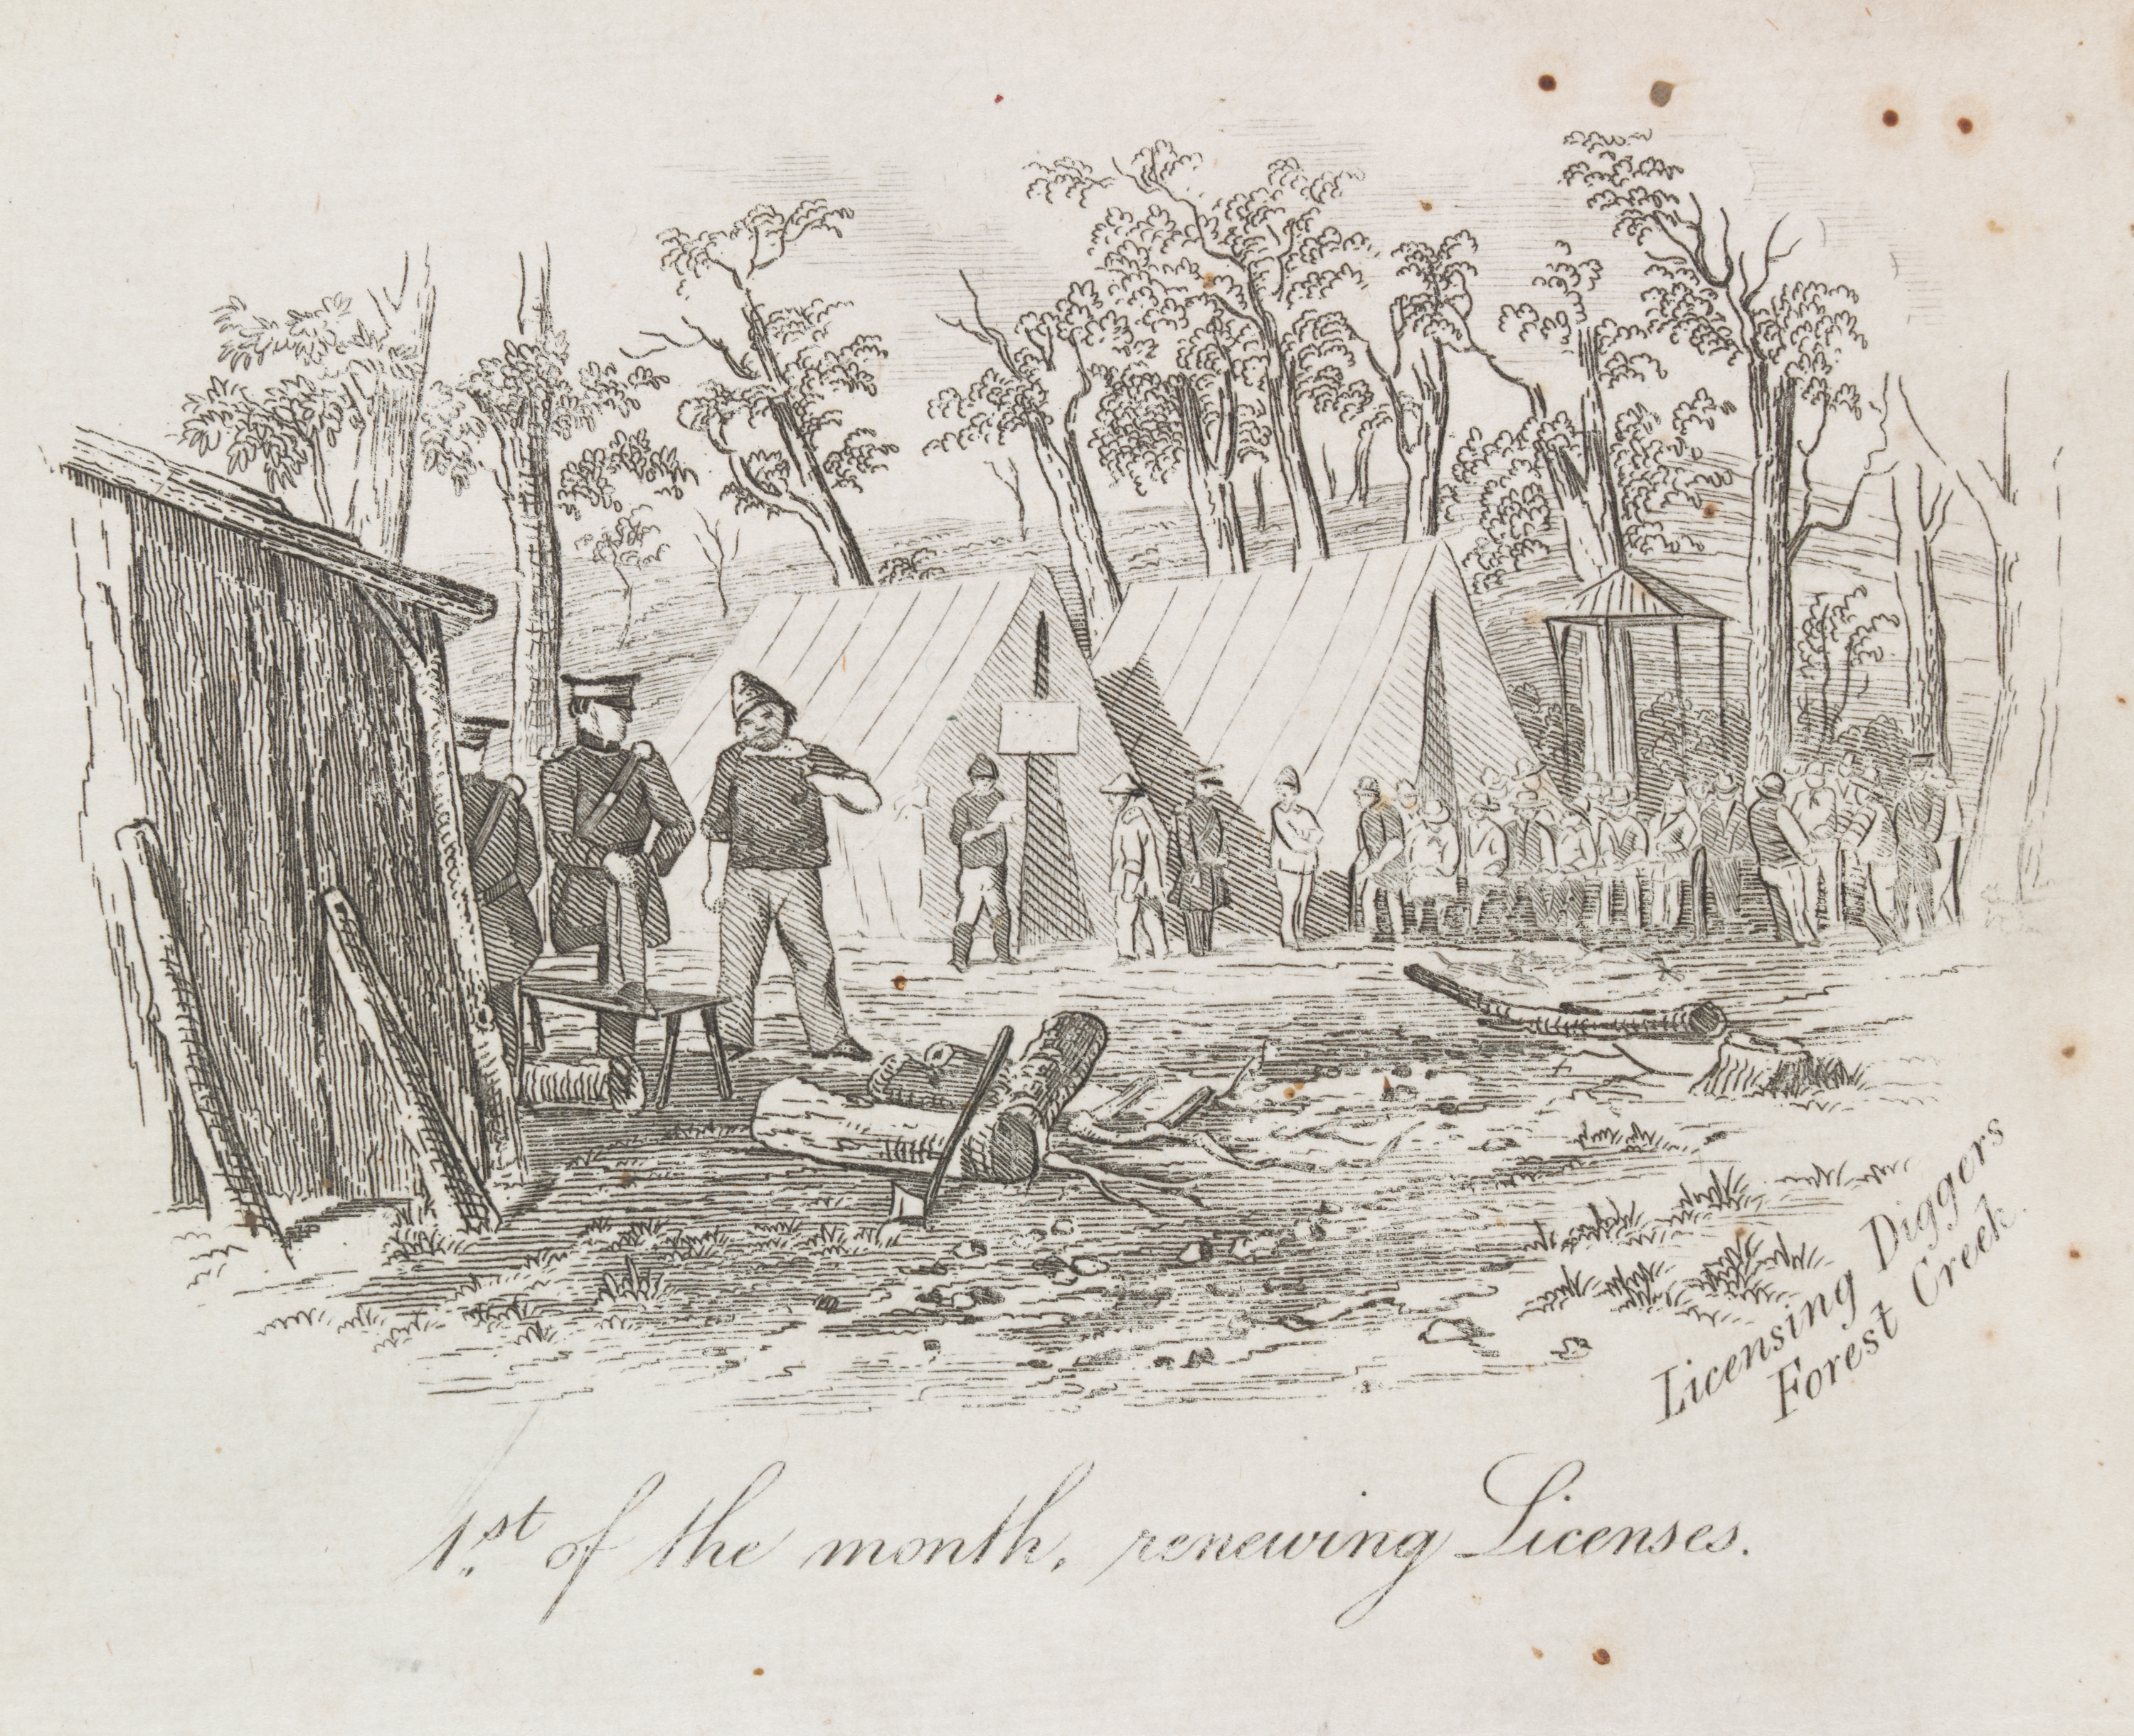 Licensing Diggers
Forest Creek.
1.st of the month, renewing Licenses.